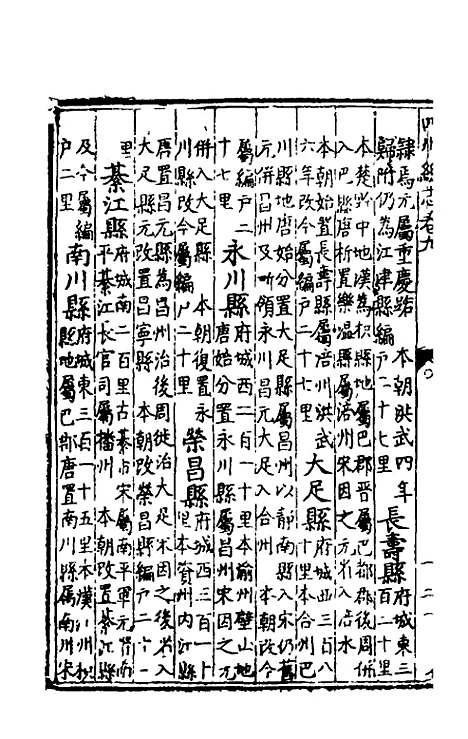 四川總志卷九
隸焉元屬重慶路 本朝洪武四年
歸附仍為江津縣編戶二十七里
長壽縣
府城東三
百二十里
本楚黔中地漢為枳縣地屬巴郡晉屬巴郡郡後周併
入巴縣唐析置樂溫縣屬涪州宋因之元省入涪水
本朝始置長壽縣屬涪州洪武
六年改今屬編戶二十七里
大足縣
府城西三百八
十里本合州巴
川縣地唐始分置大足縣屬昌州以靜南縣入宋仍舊
元併昌州及所領永川昌元大足入合州 本朝改今
屬編戶二
十七里
永川縣
府城西二百一十里本渝州壁山地
唐始分置永川縣屬昌州宋因之元
併入大足縣 本朝復置永
川縣改今屬編戶二十里
榮昌縣
府城西三百一十
里本資州內江縣
唐置昌元縣為昌州治後周徙治大足宋因之後省入
大足縣元改置昌寧縣 本朝改榮昌縣編戶二十一
里
綦江縣
府城南二百里古綦市宋屬南平軍元省南
平綦江長官司屬播州 本朝改置綦江縣
及今屬編
戶二里
南川縣
府城東三百一十五里本漢江州枳
縣地屬巴郡唐置南川縣屬南州宋